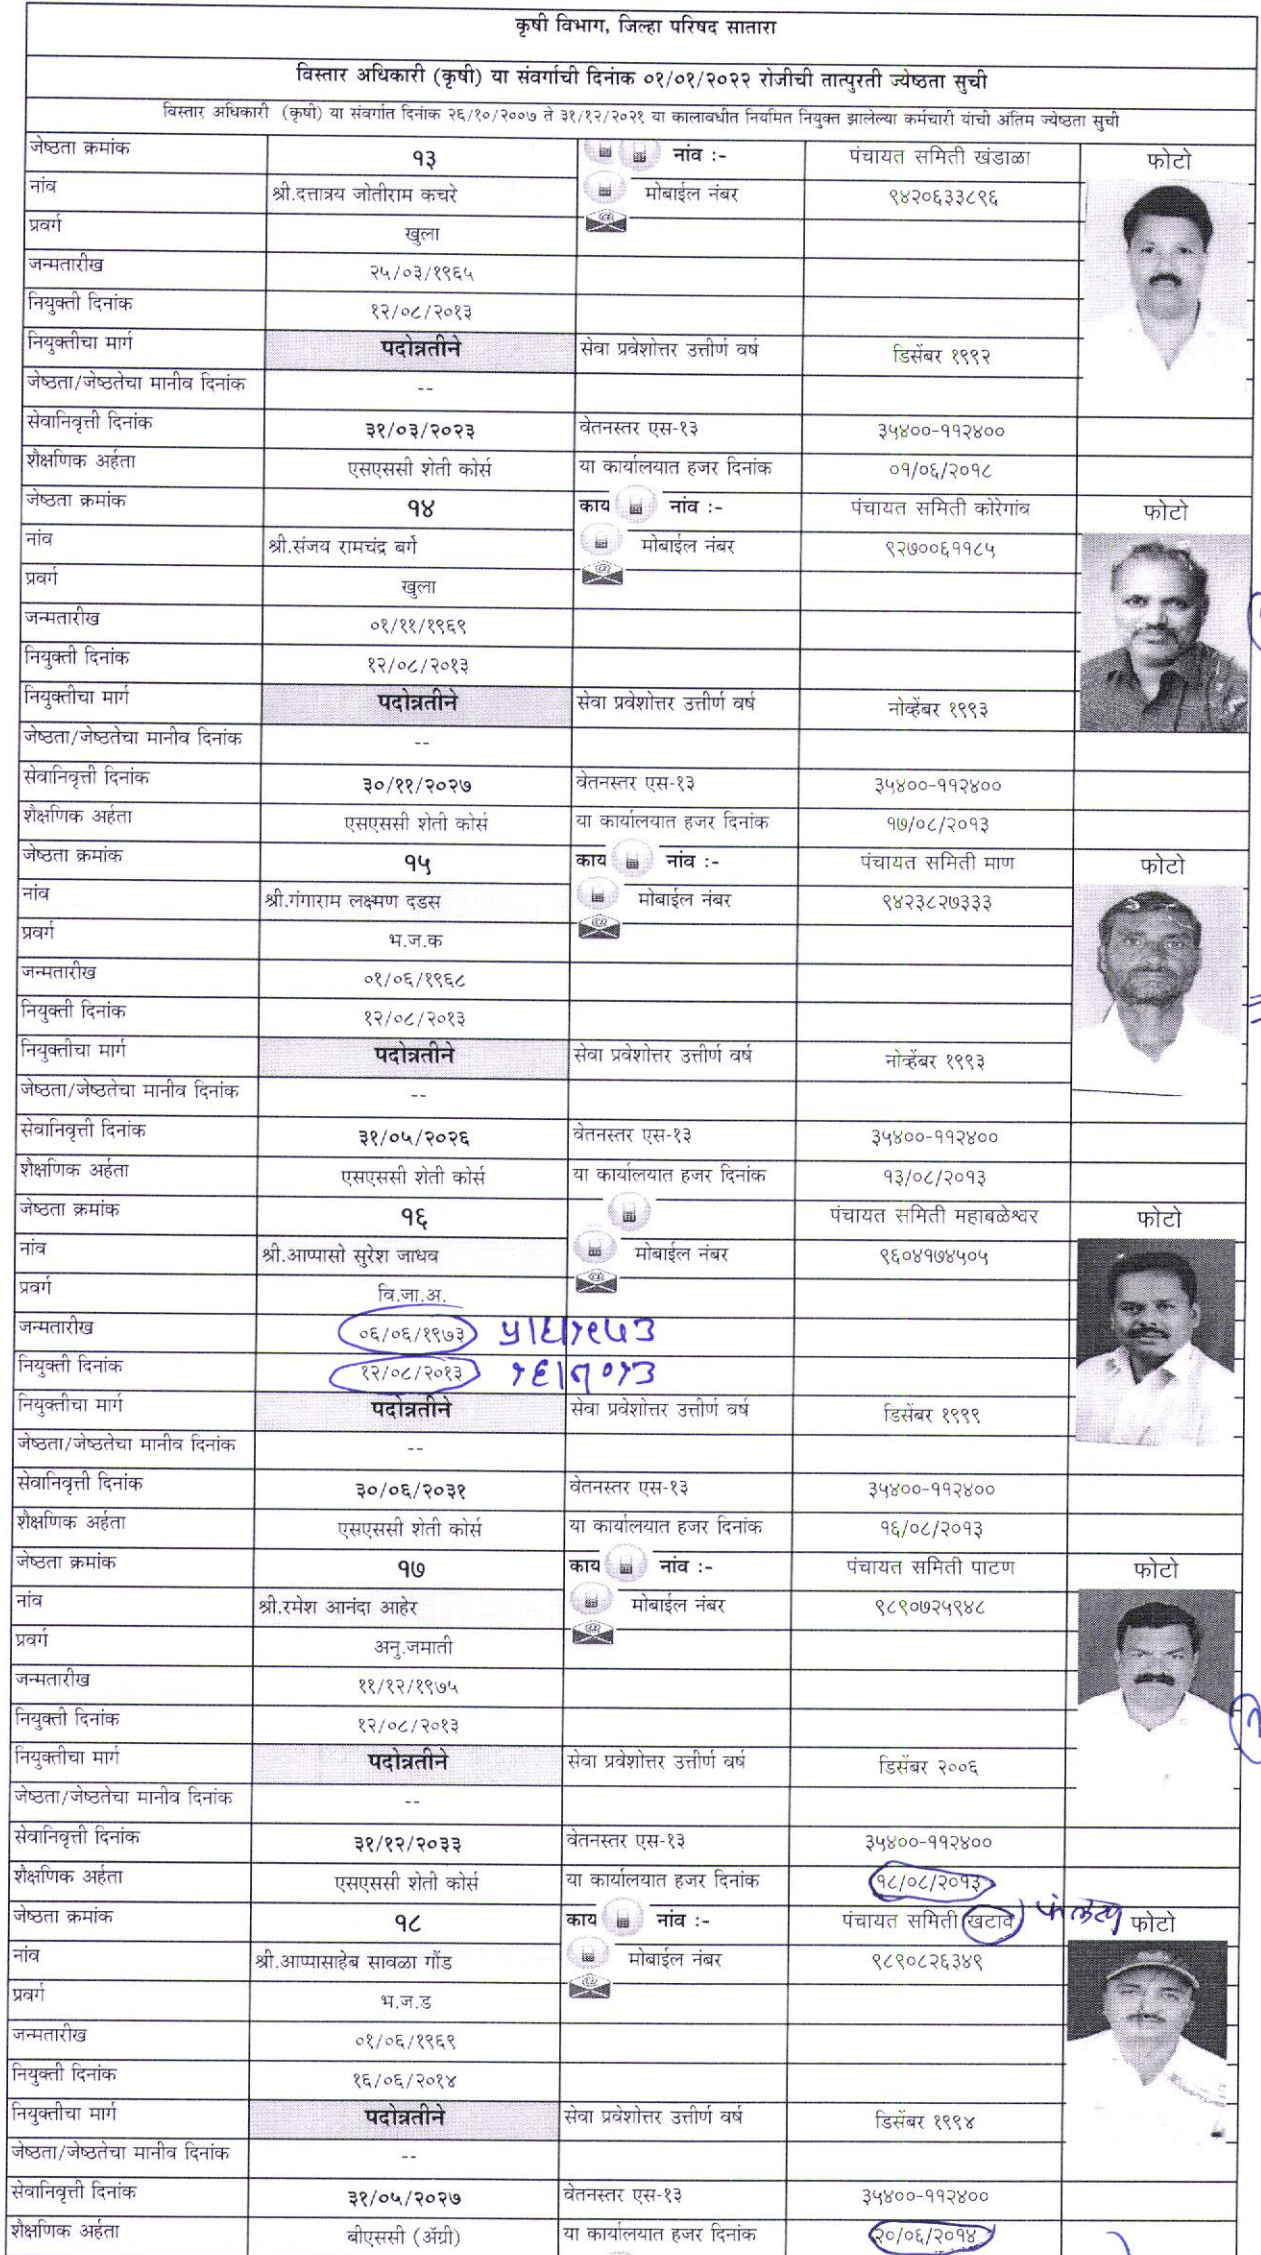 कृषी विभाग, जिल्हा परिषद सातारा
विस्तार अधिकारी (कृषी) या संवर्गाची दिनांक ०१/०१/२०२२ रोजीची तात्पुरती ज्येष्ठता सुची
विस्तार अधिकारी (कृषी) या संवर्गात दिनांक २६/१०/२००७ ते ३१/१२/२०२१ या कालावधीत नियमित नियुक्त झालेल्या कर्मचारी यांची अंतिम ज्येष्ठता सुची
जेष्ठता क्रमांक १३ नांव :- पंचायत समिती खंडाळा फोटो
नांव श्री.दत्तात्रय जोतीराम कचरे मोबाईल नंबर ९४२०६३३८९६
प्रवर्ग खुला
जन्मतारीख २५/०३/१९६५
नियुक्ती दिनांक १२/०८/२०१३
नियुक्तीचा मार्ग पदोन्नतीने सेवा प्रवेशोत्तर उत्तीर्ण वर्ष डिसेंबर १९९२
जेष्ठता/जेष्ठतेचा मानीव दिनांक --
सेवानिवृत्ती दिनांक ३१/०३/२०२३ वेतनस्तर एस-१३ ३५४००-११२४००
शैक्षणिक अर्हता एसएससी शेती कोर्स या कार्यालयात हजर दिनांक ०१/०६/२०१८
जेष्ठता क्रमांक १४ काय नांव :- पंचायत समिती कोरेगांव फोटो
नांव श्री.संजय रामचंद्र बर्गे मोबाईल नंबर ९२७००६११८५
प्रवर्ग खुला
जन्मतारीख ०१/११/१९६९
नियुक्ती दिनांक १२/०८/२०१३
नियुक्तीचा मार्ग पदोन्नतीने सेवा प्रवेशोत्तर उत्तीर्ण वर्ष नोव्हेंबर १९९३
जेष्ठता/जेष्ठतेचा मानीव दिनांक --
सेवानिवृत्ती दिनांक ३०/११/२०२७ वेतनस्तर एस-१३ ३५४००-११२४००
शैक्षणिक अर्हता एसएससी शेती कोर्स या कार्यालयात हजर दिनांक १७/०८/२०१३
जेष्ठता क्रमांक १५ काय नांव :- पंचायत समिती माण फोटो
नांव श्री.गंगाराम लक्ष्मण दडस मोबाईल नंबर ९४२३८२७३३३
प्रवर्ग भ.ज.क
जन्मतारीख ०१/०६/१९६८
नियुक्ती दिनांक १२/०८/२०१३
नियुक्तीचा मार्ग पदोन्नतीने सेवा प्रवेशोत्तर उत्तीर्ण वर्ष नोव्हेंबर १९९३
जेष्ठता/जेष्ठतेचा मानीव दिनांक --
सेवानिवृत्ती दिनांक ३१/०५/२०२६ वेतनस्तर एस-१३ ३५४००-११२४००
शैक्षणिक अर्हता एसएससी शेती कोर्स या कार्यालयात हजर दिनांक १३/०८/२०१३
जेष्ठता क्रमांक १६ पंचायत समिती महाबळेश्वर फोटो
नांव श्री.आप्पासो सुरेश जाधव मोबाईल नंबर ९६०४१७४५०५
प्रवर्ग वि.जा.अ.
जन्मतारीख ०६/०६/१९७३ ५/६/१९७३
नियुक्ती दिनांक १२/०८/२०१३
नियुक्तीचा मार्ग पदोन्नतीने सेवा प्रवेशोत्तर उत्तीर्ण वर्ष डिसेंबर १९९९
जेष्ठता/जेष्ठतेचा मानीव दिनांक --
सेवानिवृत्ती दिनांक ३०/०६/२०३१ वेतनस्तर एस-१३ ३५४००-११२४००
शैक्षणिक अर्हता एसएससी शेती कोर्स या कार्यालयात हजर दिनांक १६/०८/२०१३
जेष्ठता क्रमांक १७ काय नांव :- पंचायत समिती पाटण फोटो
नांव श्री.रमेश आनंदा आहेर मोबाईल नंबर ९८९०७२५९४८
प्रवर्ग अनु.जमाती
जन्मतारीख ११/१२/१९७५
नियुक्ती दिनांक १२/०८/२०१३
नियुक्तीचा मार्ग पदोन्नतीने सेवा प्रवेशोत्तर उत्तीर्ण वर्ष डिसेंबर २००६
जेष्ठता/जेष्ठतेचा मानीव दिनांक --
सेवानिवृत्ती दिनांक ३१/१२/२०३३ वेतनस्तर एस-१३ ३५४००-११२४००
शैक्षणिक अर्हता एसएससी शेती कोर्स या कार्यालयात हजर दिनांक १८/०८/२०१३
जेष्ठता क्रमांक १८ काय नांव :- पंचायत समिती खटाव फलटण फोटो
नांव श्री.आप्पासाहेब सावळा गौंड मोबाईल नंबर ९८९०८२६३४९
प्रवर्ग भ.ज.ड
जन्मतारीख ०१/०६/१९६९
नियुक्ती दिनांक १६/०६/२०१४
नियुक्तीचा मार्ग पदोन्नतीने सेवा प्रवेशोत्तर उत्तीर्ण वर्ष डिसेंबर १९९४
जेष्ठता/जेष्ठतेचा मानीव दिनांक --
सेवानिवृत्ती दिनांक ३१/०५/२०२७ वेतनस्तर एस-१३ ३५४००-११२४००
शैक्षणिक अर्हता बीएससी (ॲग्री) या कार्यालयात हजर दिनांक २०/०६/२०१४